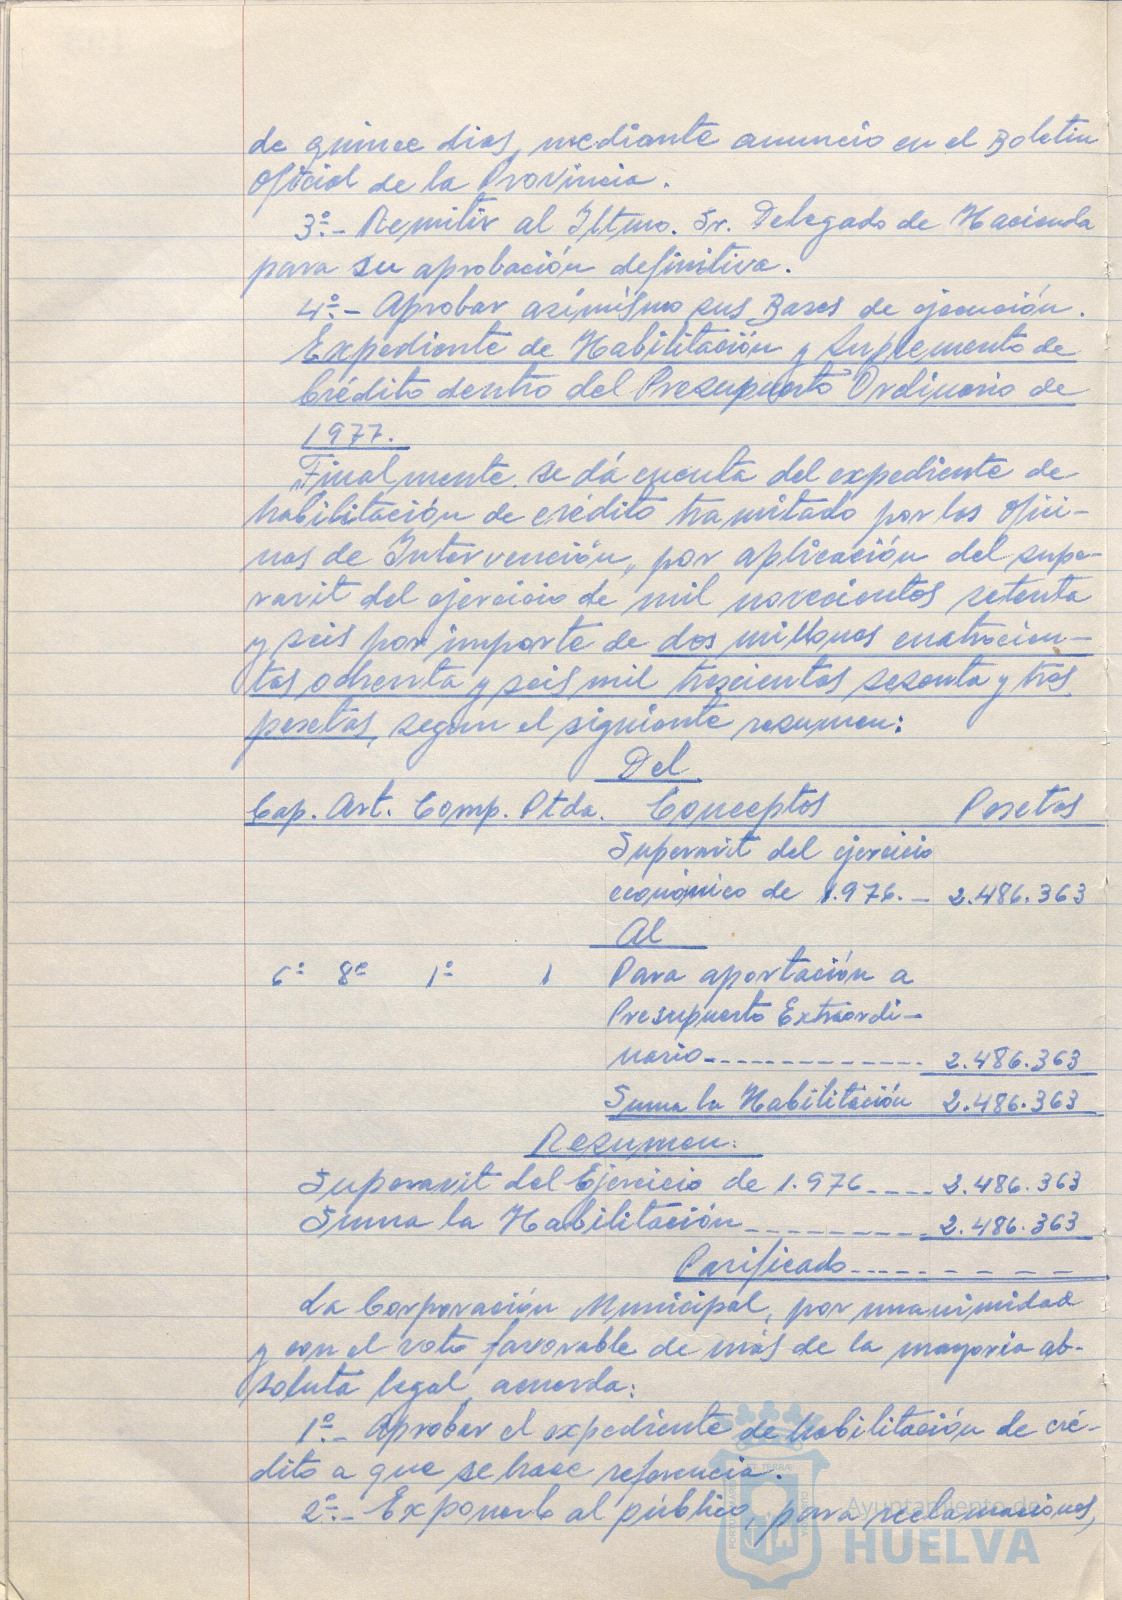 de quince dias, mediante anuncio en el Boletin
Oficial de la Provincia.
3º.- Remitir al Iltmo. Sr. Delegado de Hacienda
para su aprobación definitiva.
4º.- Aprobar asimismo sus Bases de ejecución.
Expediente de Habilitación y Suplemento de
Crédito dentro del Presupuesto Ordinario de
1977.
Finalmente se dá cuenta del expediente de
habilitación de crédito tramitado por las Ofici-
nas de Intervención, por aplicación del supe-
ravit del ejercicio de mil novecientos setenta
y seis por importe de dos millones cuatrocien-
tas ochenta y seis mil trescientas sesenta y tres
pesetas, segun el siguiente resumen:
Del
Cap. Art. Comp. Ptda. Conceptos Pesetas
Superavit del ejercicio
económico de 1.976.- 2.486.363
Al
6º 8º 1º 1 Para aportación a
Presupuesto Extraordi-
nario------------- 2.486.363
Suma la Habilitación 2.486.363
Resumen:
Superavit del Ejercicio de 1.976---- 2.486.363
Suma la Habilitación--------- 2.486.363
Parificado---------
La Corporación Municipal, por unanimidad
y con el voto favorable de más de la mayoria ab-
soluta legal, acuerda:
1º.- Aprobar el expediente de habilitación de cré-
dito a que se hace referencia.
2º.- Exponerlo al público, para reclamaciones,
Ayuntamiento de
HUELVA